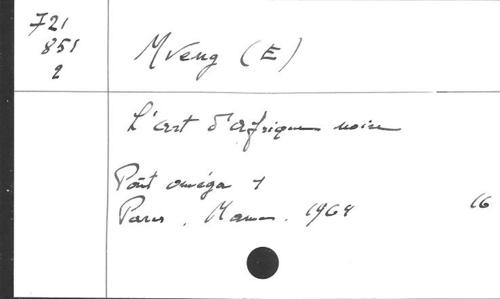 721
851
2
Mveng (E)
L'art d'Afrique noire
Point oméga 1
Paris. Mame. 1964
16